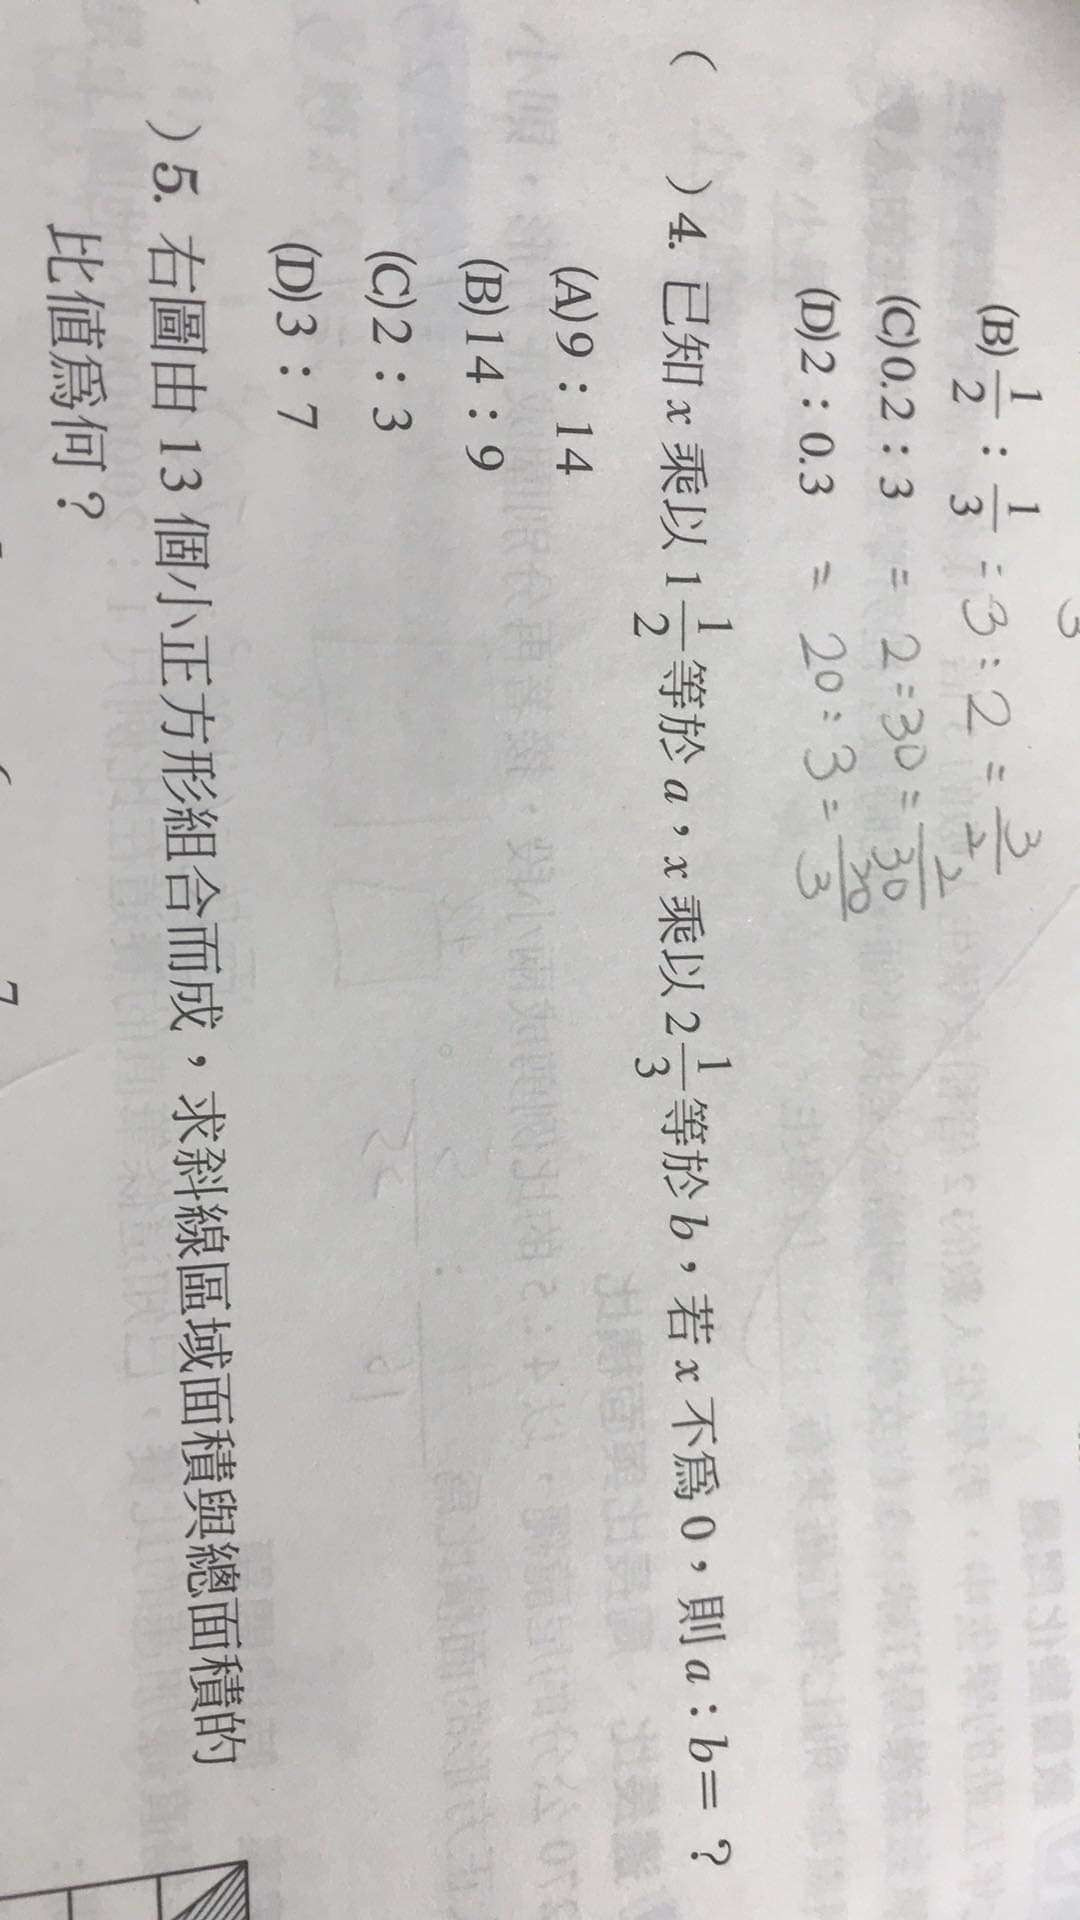 (B)1/2：1/3 = 3 : 2 = 3/2
(C)0.2：3 = 2 = 30 = 2/30
(D)2：0.3 = 20 : 3 = 20/3
(　)4. 已知 x 乘以 1 1/2 等於 a，x 乘以 2 1/3 等於 b，若 x 不為 0，則 a：b=？
(A)9：14
(B)14：9
(C)2：3
(D)3：7
)5. 右圖由 13 個小正方形組合而成，求斜線區域面積與總面積的
比值為何？